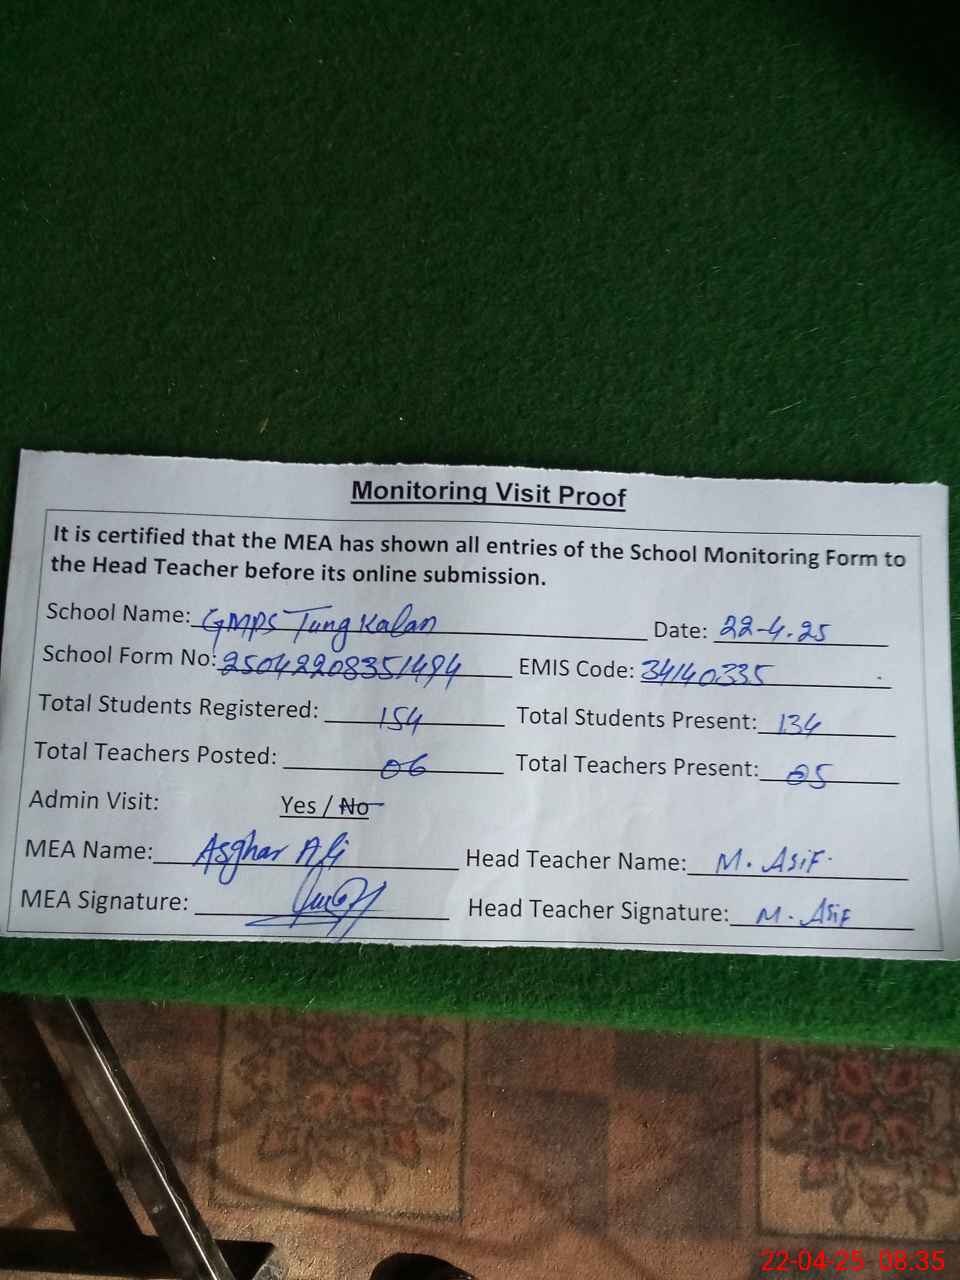 Monitoring Visit Proof
It is certified that the MEA has shown all entries of the School Monitoring Form to
the Head Teacher before its online submission.
School Name: GMPS Tung Kalan Date: 22-4.25
School Form No: 25042208351494 EMIS Code: 34140335
Total Students Registered: 154 Total Students Present: 134
Total Teachers Posted: 06 Total Teachers Present: 05
Admin Visit: Yes / No
MEA Name: Asghar Ali Head Teacher Name: M. ASIF.
MEA Signature: Head Teacher Signature: M. Asif
22-04-25 08:35